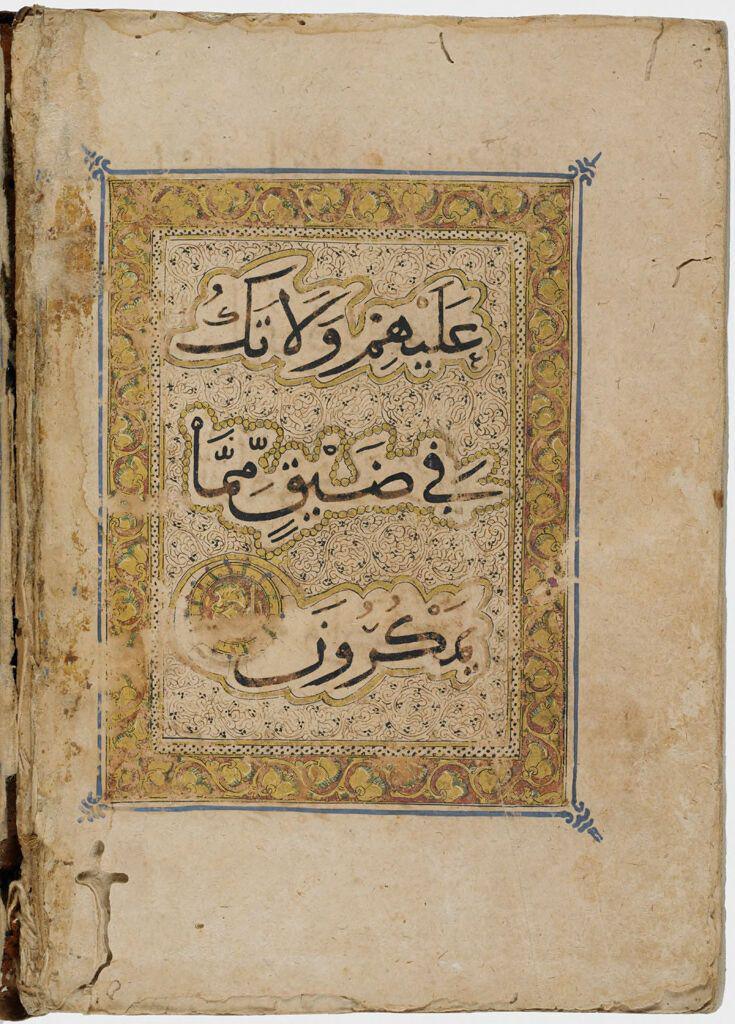 عَلَيْهِمْ وَلَا تَكُ
فِي ضَيْقٍ مِّمَّا
يَمْكُرُونَ